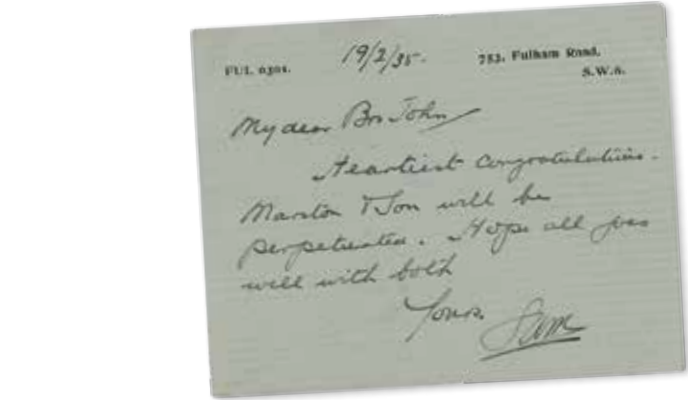 19/2/35.
FUL 0301.
753, Fulham Road,
S.W.6.
My dear Bro John
Heartiest Congratulations.
Marston & Son will be
perpetuated. Hope all goes
well with both
Yours.
Sam